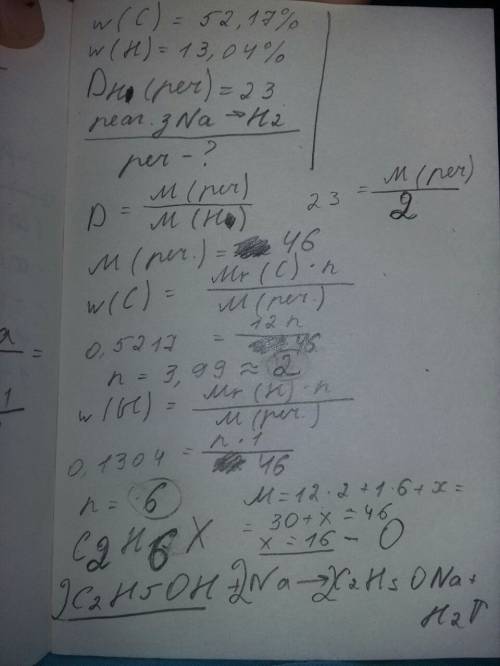 w(C) = 52,17%
w(H) = 13,04%
D H (реч) = 23
реаг. з Na → H2
реч - ?
D = M(реч) / M(H)
23 = M(реч) / 2
M(реч.) = 46
w(C) = Mr(C)·n / M(реч.)
0,5217 = 12n / 46
n = 3,99 ≈ 2
w(H) = Mr(H)·n / M(реч.)
0,1304 = n·1 / 46
n = 6
M = 12·2 + 1·6 + x =
= 30 + x = 46
x = 16 - O
C2H6X
2C2H5OH + 2Na → 2C2H5ONa +
H2↑